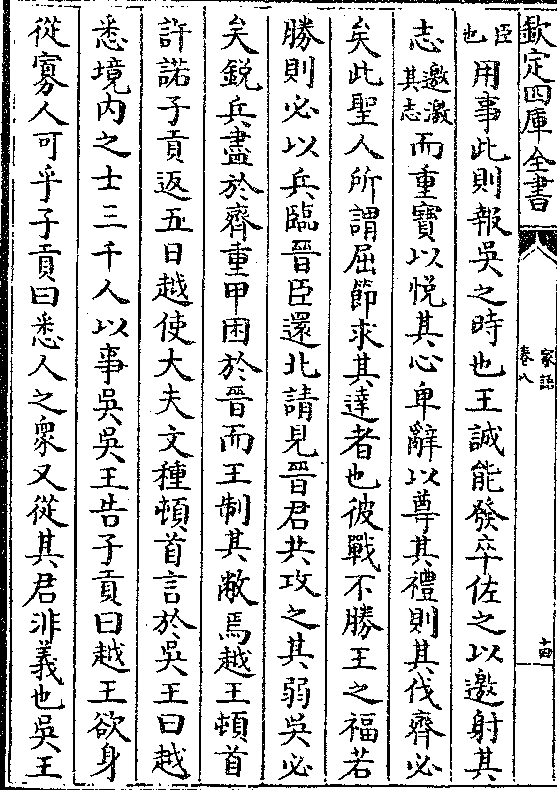 欽定四庫全書
家語
卷八
十四
臣也用事此則報吳之時也王誠能發卒佐之以邀射其
志邀激其志而重寶以悦其心卑辭以尊其禮則其伐齊必
矣此聖人所謂屈節求其達者也彼戰不勝王之福若
勝則必以兵臨晉臣還北請見晉君共攻之其弱吳必
矣銳兵盡於齊重甲困於晉而王制其敝焉越王頓首
許諾子貢返五日越使大夫文種頓首言於吳王曰越
悉境内之士三千人以事吳吳王告子貢曰越王欲身
從寡人可乎子貢曰悉人之衆又從其君非義也吳王